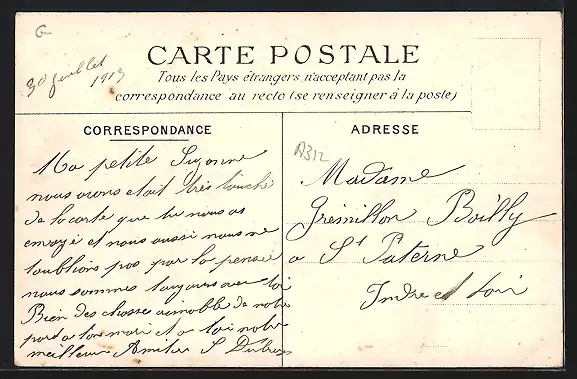 G
30 Juillet
1913
CARTE POSTALE
Tous les Pays étrangers n'acceptant pas la
correspondance au recto (se renseigner à la poste)
CORRESPONDANCE
Ma petite Suzanne
nous avons etait très touché
de la carte que tu nous as
envoyé et nous aussi nous ne
toublions pas par la pensée
nous sommes toujours avec toi
Bien des choses aimable de notre
part a ton mari et a toi notre
meilleur Amities S
ADRESSE
A312
Madame
Grémillon Boilly
a St Paterne
Indre et Loir